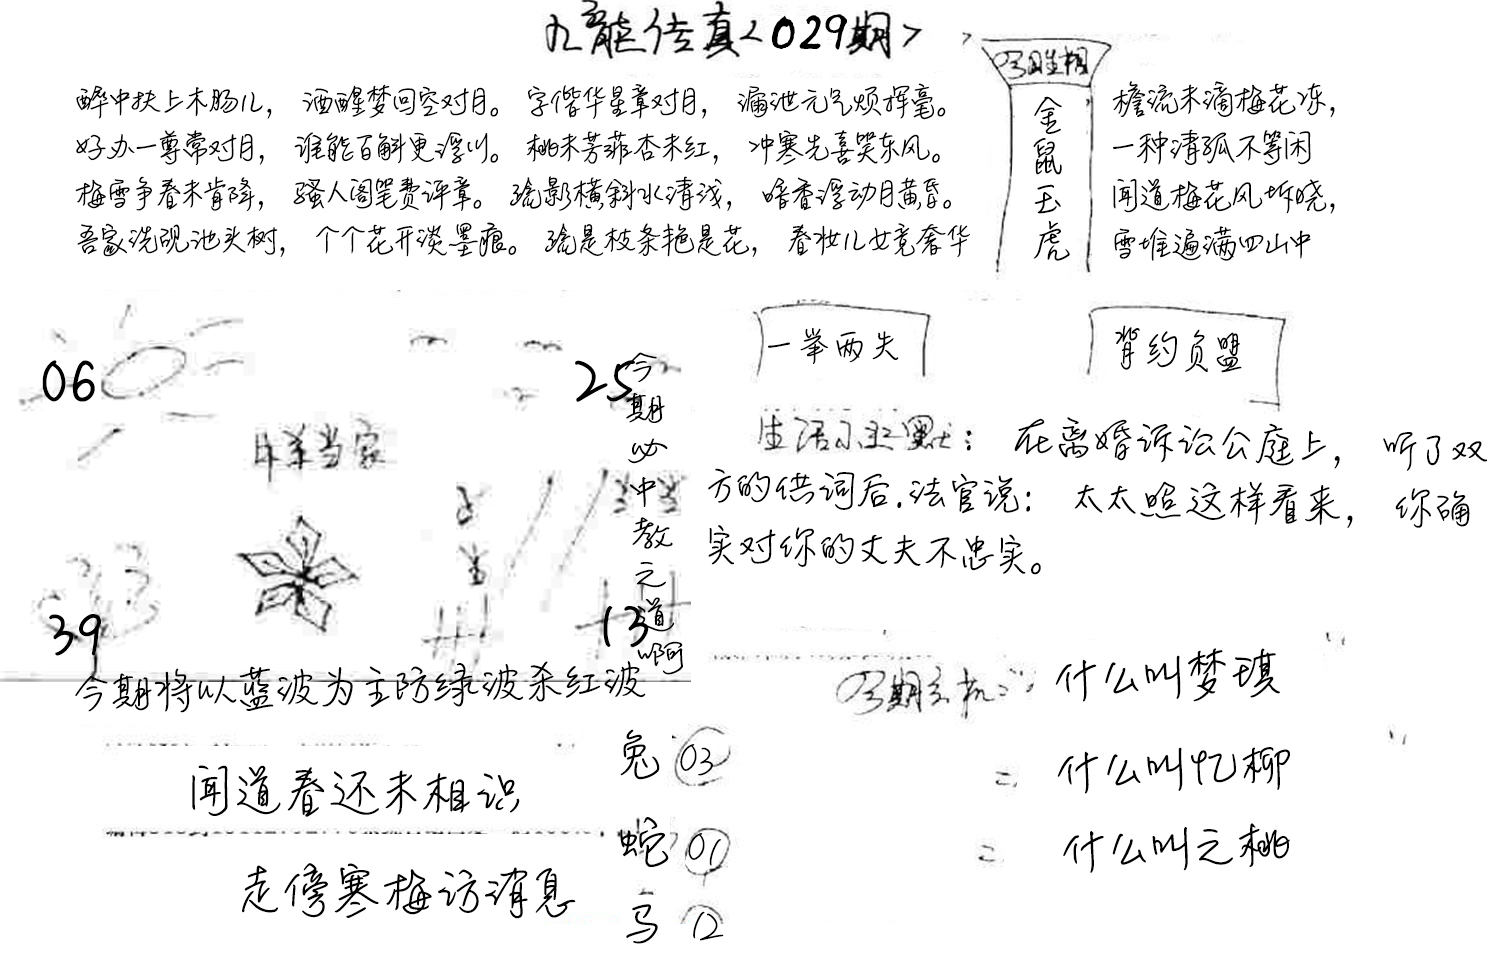 九龍传真<029期>
今日生相
金鼠玉虎
醉中扶上木肠儿，酒醒梦回空对月。字偕华星章对月，漏泄元气烦挥毫。
好办一尊常对月，谁能百斛更浮川。桃未芳菲杏未红，冲寒先喜笑东风。
梅雪争春未肯降，骚人阁笔费评章。疏影横斜水清浅，暗香浮动月黄昏。
吾家洗砚池头树，个个花开淡墨痕。疏是枝条艳是花，春妆儿女竞奢华
檐流未滴梅花冻，
一种清孤不等闲
闻道梅花风坼晓，
雪堆遍满四山中
06
25
39
13
今期必中教之道啊
今期将以蓝波为主防绿波杀红波
一举两失
背约负盟
生活小幽默：在离婚诉讼公庭上，听了双
方的供词后.法官说：太太照这样看来，你确
实对你的丈夫不忠实。
闻道春还未相识
走傍寒梅访消息
兔 03
蛇 01
马 12
今期玄机一：什么叫梦琪
二 什么叫忆柳
三 什么叫之桃